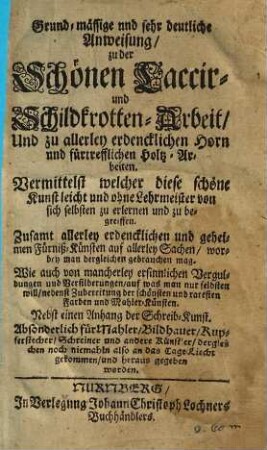 Grund-mässige und sehr deutliche
Anweisung/
zu der
Schönen Laccir-
und
Schildkrotten-Arbeit/
Und zu allerley erdencklichen Horn
und fürtrefflichen Holtz-Ar-
beiten.
Vermittelst welcher diese schöne
Kunst leicht und ohne Lehrmeister von
sich selbsten zu erlernen und zu be-
greiffen.
Zusamt allerley erdencklichen und gehei-
men Fürniß-Künsten auf allerley Sachen/ wor-
bey man dergleichen gebrauchen mag.
Wie auch von mancherley ersinnlichen Vergul-
dungen und Versilberungen/ auf was man nur selbsten
will/ nebenst Zubereitung der schönsten und raresten
Farben und Mahler-Künsten.
Nebst einen Anhang der Schreib-Kunst.
Absonderlich für Mahler/ Bildhauer/ Kup-
ferstecher/ Schreiner und andere Künstler/ derglei-
chen noch niemahln also an das Tage-Liecht
gekommen/ und heraus gegeben
worden.
NURNBERG/
In Verlegung Johann Christoph Lochners
Buchhändlers.